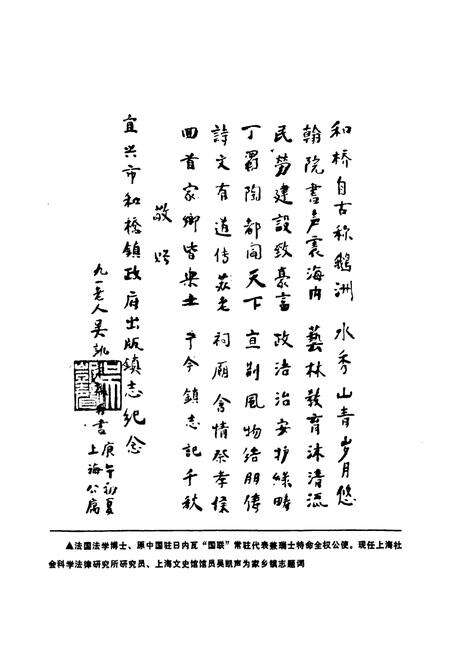 和桥自古称鹅洲 水秀山青岁月悠
翰院書声震海内 藝林教育沐清流
民勞建設致豪富 政治治安护绿畴
丁蜀陶都闻天下 亘荆風物结朋俦
詩文有道传荻老 祠廟含情祭孝侯
回首家鄉皆樂土 于今鎮志記千秋
敬贈
宜兴市和橋鎮政府出版鎮志纪念
九一老人吴凯声
庚午初夏
上海公寓
▲法国法学博士、原中国驻日内瓦“国联”常驻代表兼瑞士特命全权公使。现任上海社
会科学法律研究所研究员、上海文史馆馆员吴凯声为家乡镇志题词